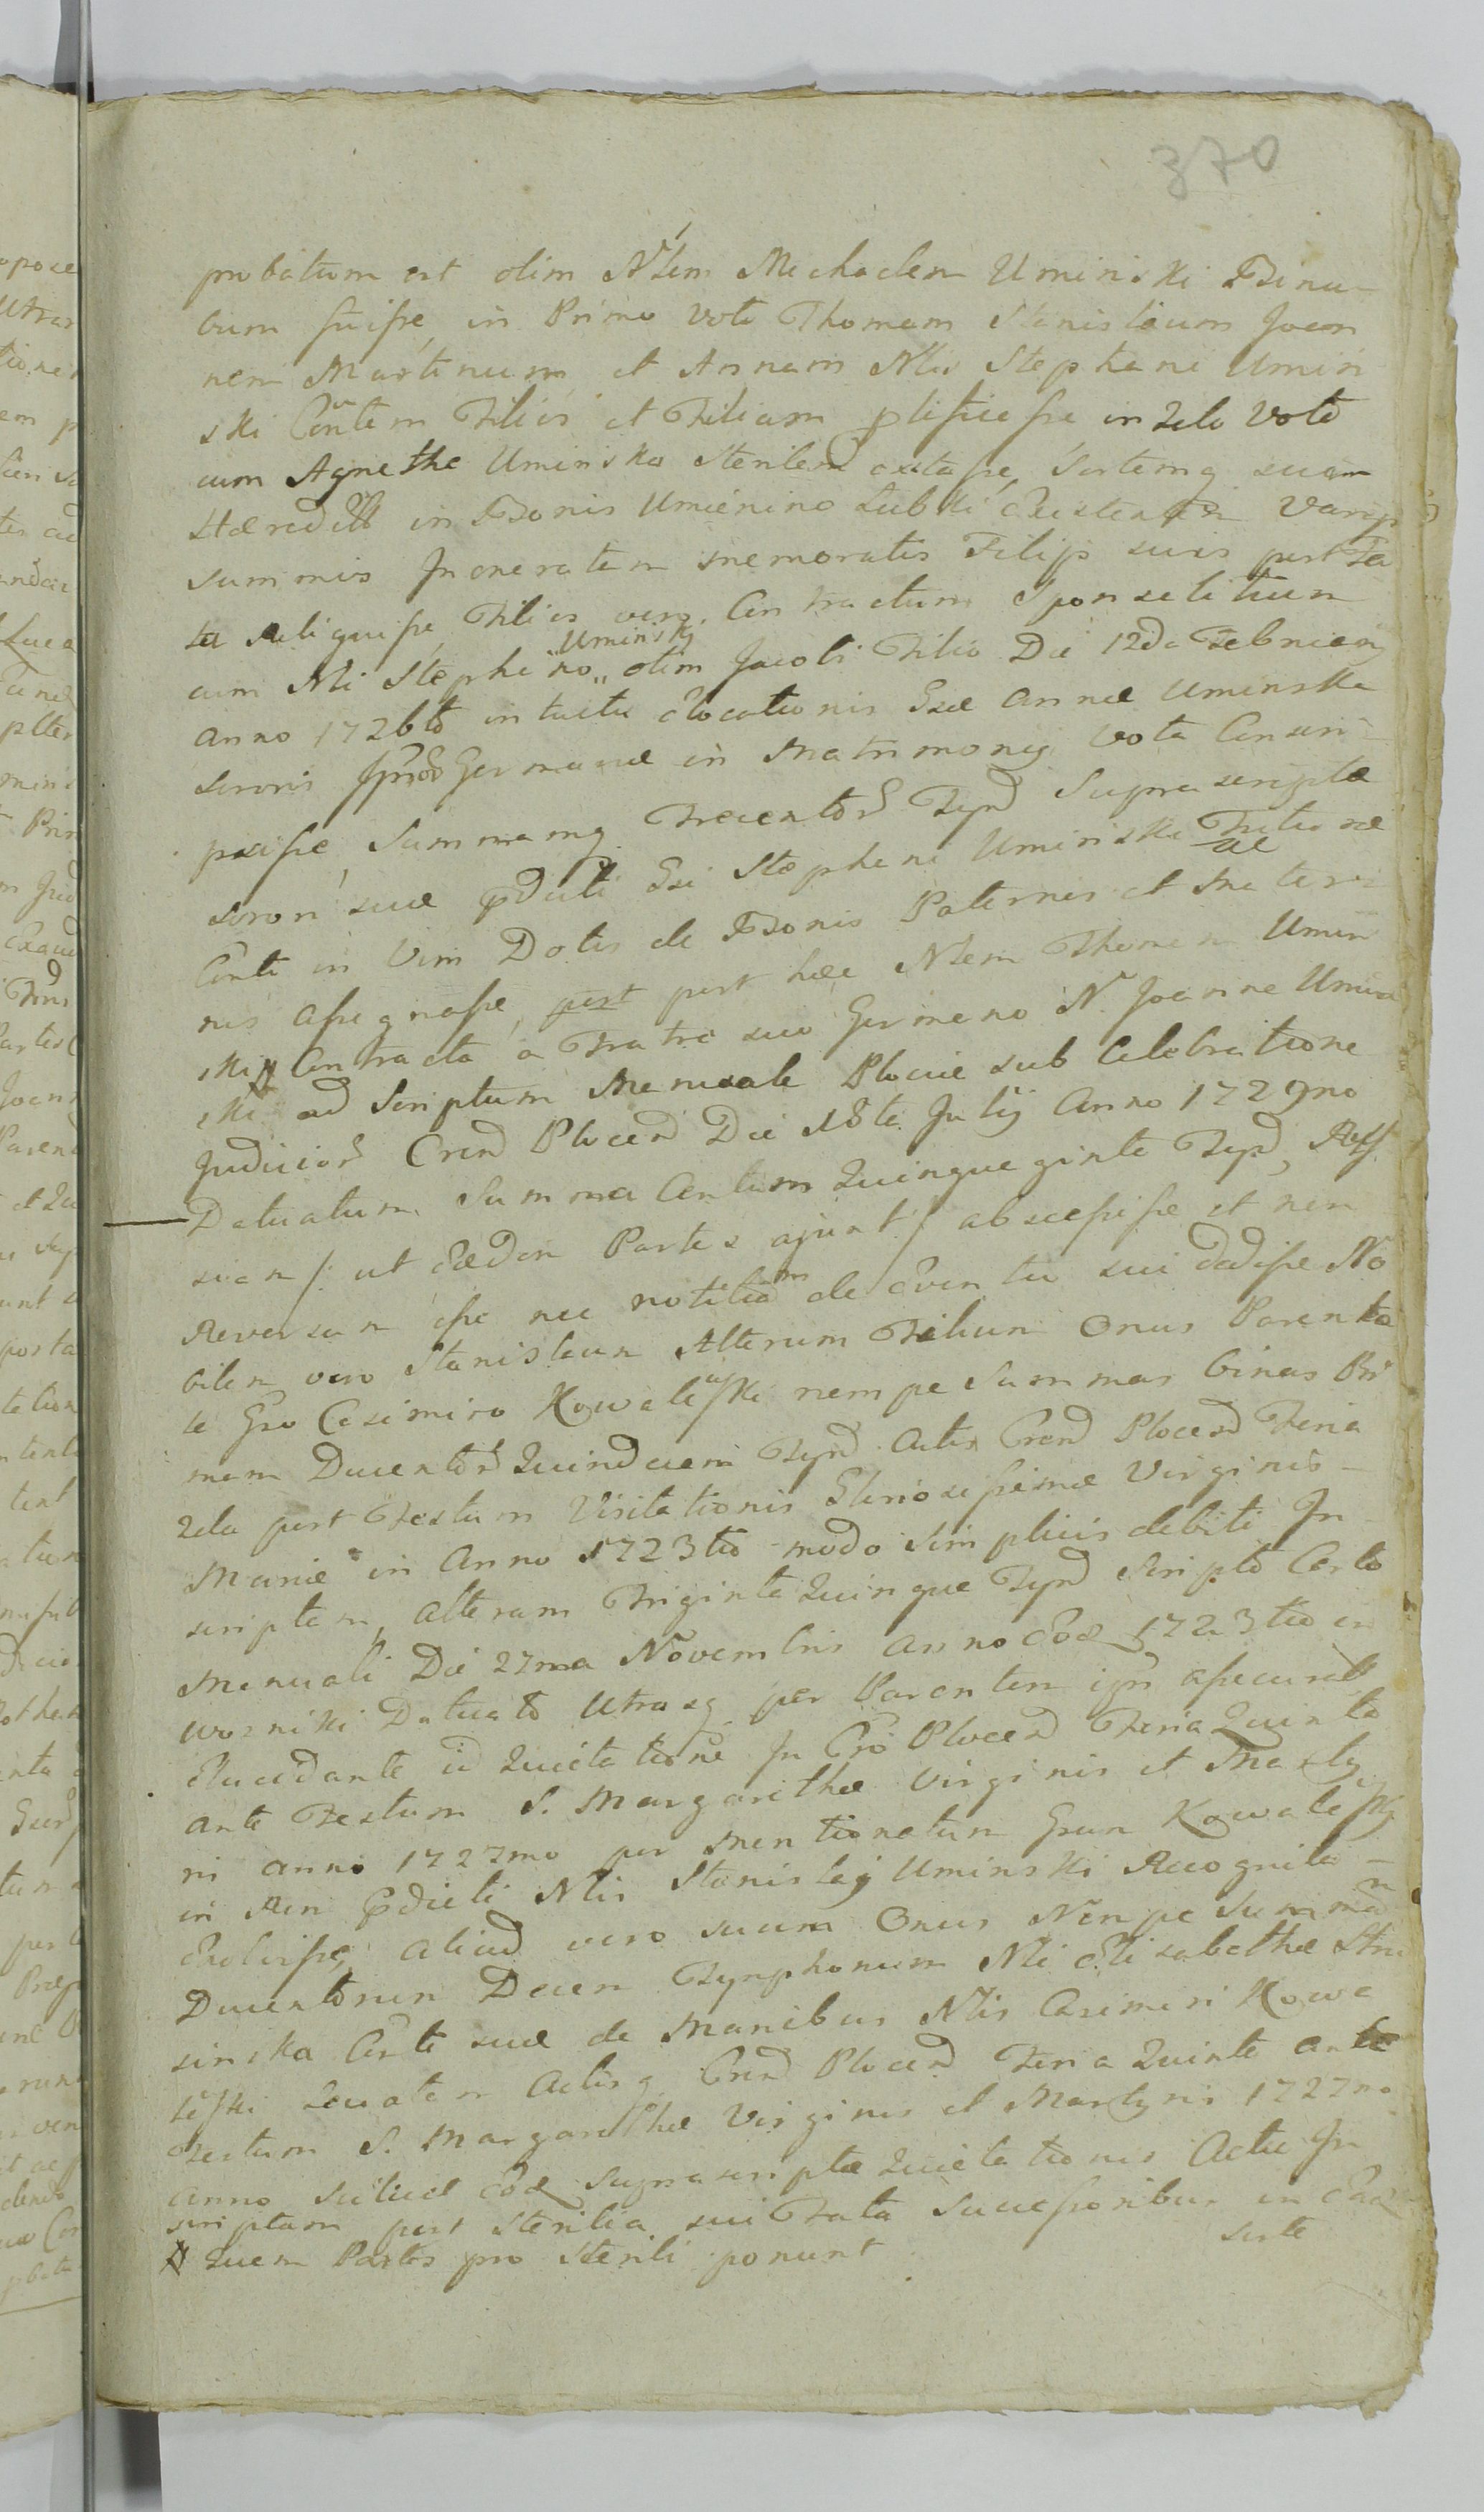 370
probatum est olim Nlem Michaelem Uminski Binu-
bum fuisse, in Primo Voto Thomam Stanislaum Joan
nem Martinum et Annam Nlis Stephani Umin
ski Contem Filios et Filiam plificasse in 2do Voto
cum Agnethe Uminska Sterilem extasse, Sortemq suam
Hæredit in Bonis Umienino Lubki Existentem Varijs
Summis Inoneratam memoratis Filijs suis post Fa
ta reliquisse, Filios vero Contractum Sponsalitium
cum Nli Stephano Uminsky olim Jacobi Filio Die 12da Februarij
Anno 1726to intuitu Elocationis Gsæ Annæ Uminska
Sororis Germanæ in Matrimonij Vota Conscri-
psisse, Summamq Trecentor Tynd Suprascriptæ
Sorori suæ Gsi Stephani Uminski Futuræ
Conti in Vim Dotis de Bonis Paternis et Mater
nis assignasse, post post hæc Nlem Thomam Umin
ski # Contracta a Fratre suo Germano N. Joanne Umin
ski ad Scriptum Manuale Plociæ sub Celebratione
Judicior Crend Plocen Die 18ta Julij Anno 1729no
Datuatum, Summa Centum Quinquaginta Tynd,
sian /: ut Eædem Partes ajunt :/ abscessisse et non
Reversum esse nec notitiam de Eventu sui dedisse No
bilem vero Stanislaum Alterum Filium Onus Parenta
le Gso Casimiro Kowalewski nempe Summas binas Pri
mam Ducentor Quindecim Tynd Actis Crend Plocen Feria
2da post Festum Visitationis Gloriosissimæ Virginis
Mariæ in Anno 1723tio modo simplicis debiti In
scriptam, Alteram Triginta Quinque Tynd Scripto Certo
Manuali Die 27ma Novembris Anno Eod 1723tio in
Worniki Datuato Utrasq per Parentem
Elucidante id Quietatione In Cro Plocen Feria Quinta
ante Festum S. Margarithæ Virginis et Marty
ris anno 1727mo per Mentionatum Gsum Kowalewsky
in Rem Nlis Stanislaj Uminski Recognita
Exolvisse, aliud vero suum Onus Nempe Summam
Ducentorum Decem Tynphonum Nli Elisabethæ Stru
sinska Conti suæ de Manibus Nlis Casimiri Kowa
lewski Levatam Actisq Crend Plocen Feria Quinta ante
Festum S. Margarithæ Virginis et Martyris 1727mo
Anno scilicet Eod Suprascriptæ Quietationis Actu In
scriptam post Sterilia sui Fata Successoribus in Ead
Sorte
# Quem Partes pro Sterili ponunt